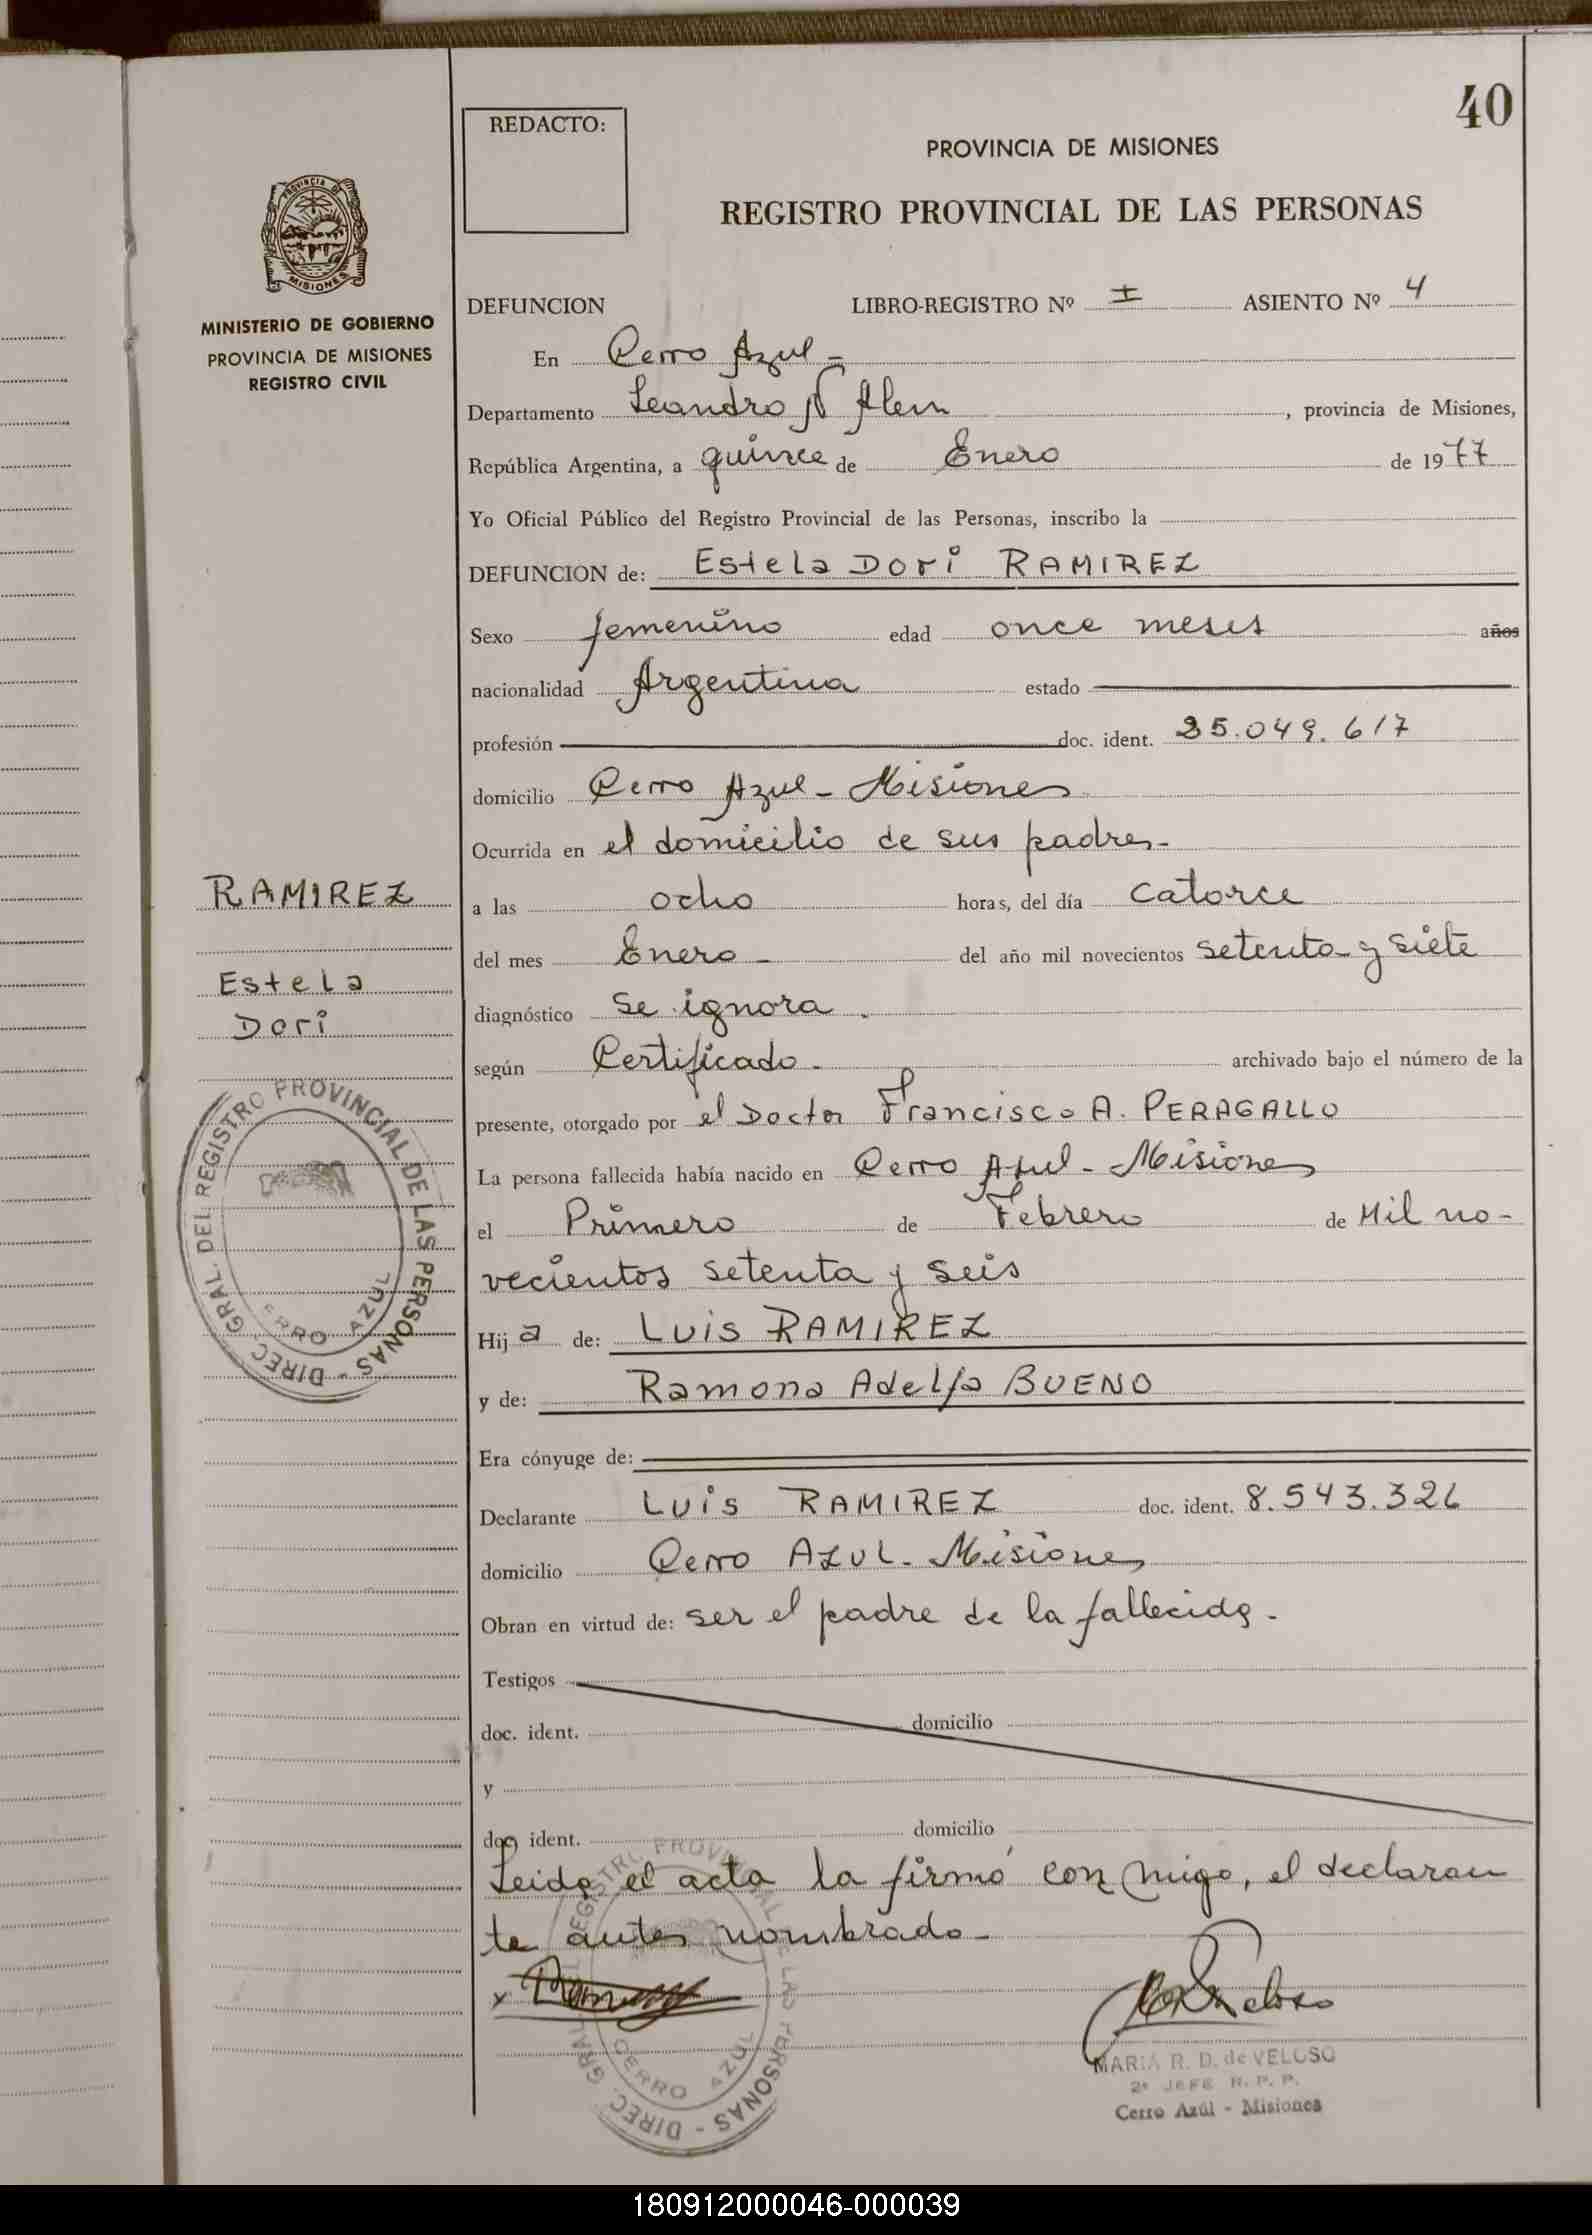 40
REDACTO:
PROVINCIA DE MISIONES
REGISTRO PROVINCIAL DE LAS PERSONAS
PROVINCIA DE
MISIONES
MINISTERIO DE GOBIERNO
PROVINCIA DE MISIONES
REGISTRO CIVIL
DEFUNCION LIBRO-REGISTRO Nº I ASIENTO Nº 4
En Cerro Azul -
Departamento Leandro N Alem , provincia de Misiones,
República Argentina, a quince de Enero de 1977
Yo Oficial Público del Registro Provincial de las Personas, inscribo la
DEFUNCION de: Estela Dori RAMIREZ
Sexo femenino edad once meses años
nacionalidad Argentina estado
profesión doc. ident. 25.049.617
domicilio Cerro Azul - Misiones
Ocurrida en el domicilio de sus padres -
a las ocho horas, del día catorce
del mes Enero - del año mil novecientos setenta y siete
diagnóstico se ignora .
según Certificado - archivado bajo el número de la
presente, otorgado por el Doctor Francisco A. PERAGALLO
La persona fallecida había nacido en Cerro Azul - Misiones
el Primero de Febrero de Mil no-
vecientos setenta y seis
Hija de: Luis RAMIREZ
y de: Ramona Adelfa BUENO
Era cónyuge de:
Declarante Luis RAMIREZ doc. ident. 8.543.326
domicilio Cerro AZUL - Misiones
Obran en virtud de: ser el padre de la fallecida -
Testigos
doc. ident. domicilio
y
doc. ident. domicilio
Leida el acta la firmó con migo, el declaran
te antes nombrado -
RAMIREZ
Estela
Dori
DIREC. GRAL. DEL REGISTRO PROVINCIAL DE LAS PERSONAS -
CERRO AZUL
x
DIREC. GRAL. DEL REGISTRO PROVINCIAL DE LAS PERSONAS -
CERRO AZUL
MARIA R. D. de VELOSO
2º JEFE R. P. P.
Cerro Azúl - Misiones
180912000046-000039